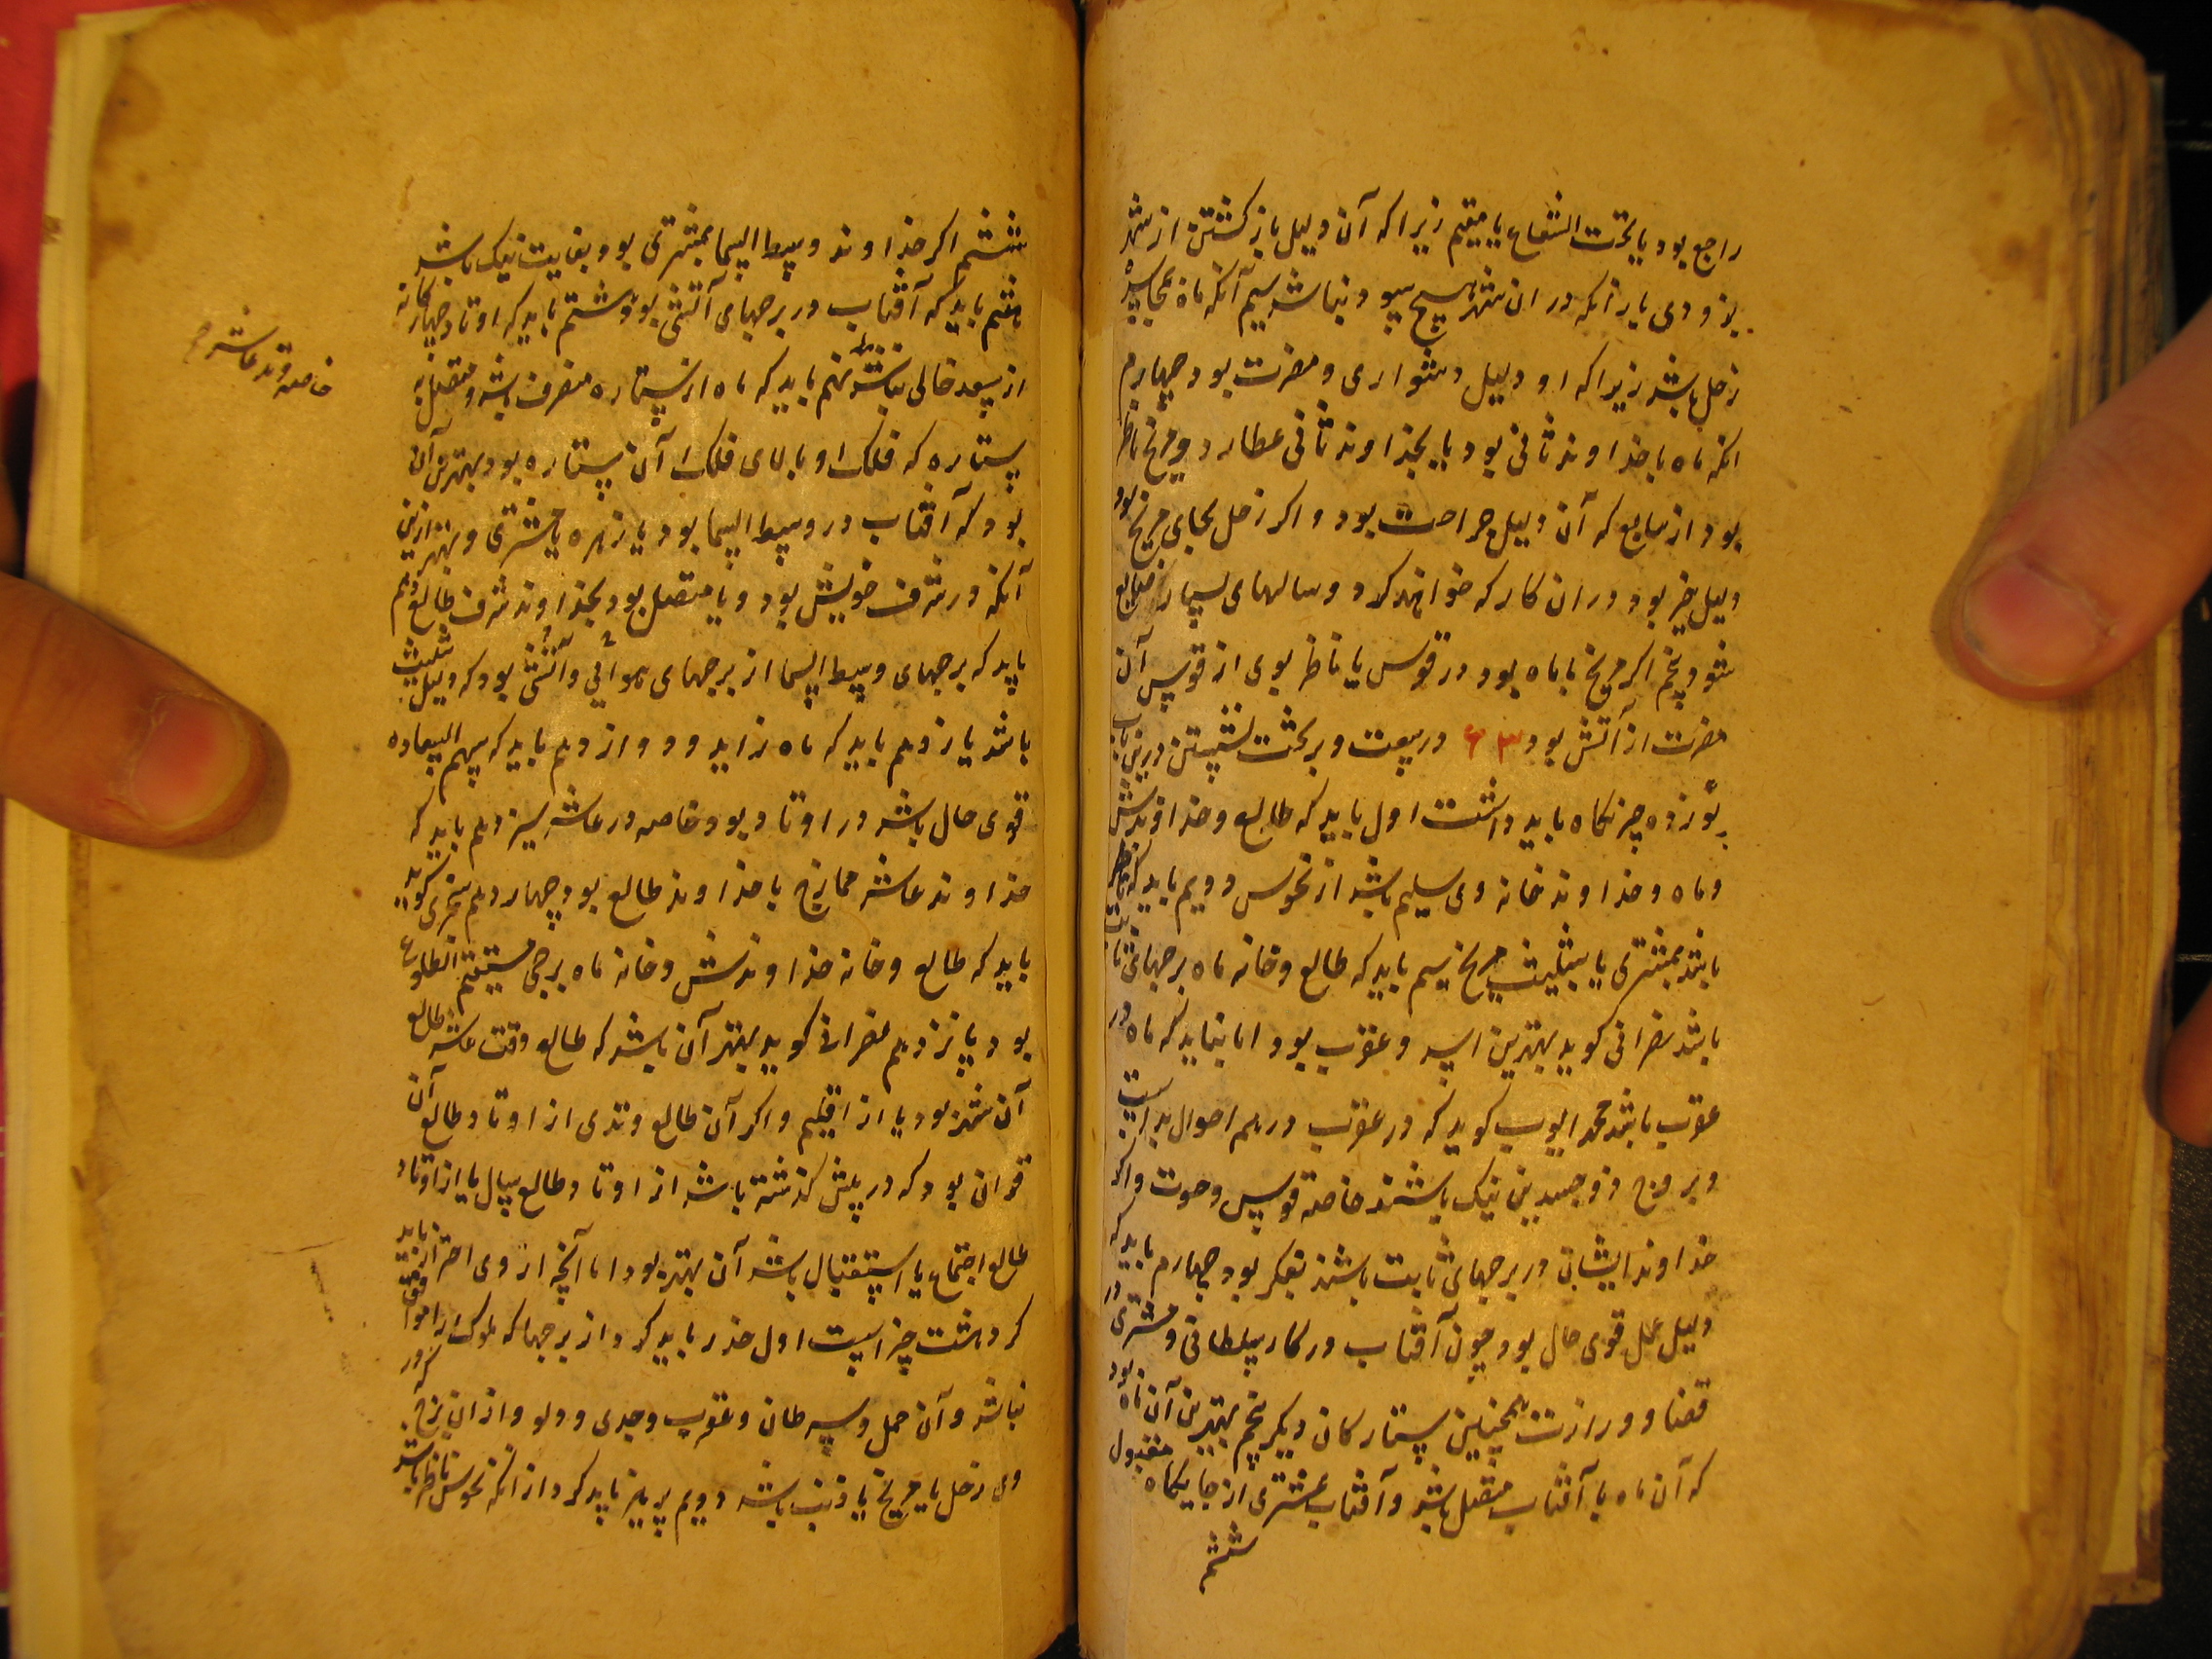 راجع بود یا تحت الشعاع یا مقیم زیرا که آن دلیل باز کشتن از شهر
بزودی یا زانکه در ان شهر هیچ سود نباشد سیم آنکه ماه
زحل باشد زیرا که او دلیل دشواری و مضرت بود چهارم
انکه ماه با خداوند ثانی بود یا بخداوند ثانی عطارد و مریخ ناظر
بود از سابع که آن دلیل جراحت بود و اکر زحل بجای مریخ بود
دلیل خیر بود در ان کار که خواهد کرد و سالهای بسیار ضایع
شود پنجم اکر مریخ با ماه بود در قوس یا ناظر بوی از قوس آن
مضرت از آتش بود ۶۳ در بیعت و بر تخت نشستن درین باب
پانزده چیز نکاه باید داشت اول باید که طالع و خداوندش
و ماه و خداوند خانه وی سلیم باشد از نحوس دویم باید که ناظر
باشد بمشتری یا بتثلیث مریخ سیم باید که طالع و خانه ماه برجهای ثابت
باشد نصرانی کوید بهترین اسد و عقرب بود اما نباید که ماه در
عقرب باشد محمد ایوب کوید که در عقرب در همه احوال بد است
و بروج ذوجسدین نیک باشند خاصه قوس و حوت و اکر
خداوند ایشان در برجهای ثابت باشند نیکو بود چهارم باید که
دلیل عمل قوی حال بود چون آفتاب در کار سلطانی و مشتری در
قضا و وزارت همچنین ستارکان دیکر پنجم بهترین آن بود
که آن ماه با آفتاب متصل باشد و آفتاب بمشتری از جایکاه مقبول
ششم
ششم اکر خداوند وسط السما مشتری بود بغایت نیک باشد
هفتم باید که آفتاب در برجهای آتشی بود هشتم باید که اوتاد چهارکانه
از سعد خالی نباشد نهم باید که ماه از ستاره منصرف باشد و متصل به
ستاره که فلک او بالای فلک آن ستاره بود بهترین آن
بود که آفتاب در وسط السما بود یا زهره یا مشتری و بهتر ازین
آنکه در شرف خویش بود و یا متصل بود بخداوند شرف طالع دهم
باید که برجهای وسط السما از برجهای هوائی و آتشی بود که دلیل مثلیث
باشد یازدهم باید که ماه زاید و دوازدهم باید که سهم السعاده
قوی حال باشد در اوتاد بود خاصه در عاشر سیزدهم باید که
خداوند عاشر ممازج با خداوند طالع بود چهاردهم سجزی کوید
باید که طالع و خانه خداوندش و خانه ماه برجی مستقیم الطلوع
بود پانزدهم نصرانی کوید بهتر آن باشد که طالع وقت عاشر طالع
آن شهر بود یا از اقلیم و اکر آن طالع وتدی از اوتاد طالع آن
قران بود که در پیش کذشته باشد از اوتاد طالع سال یا از اوتاد
طالع اجتماع یا استقبال باشد آن بهتر بود اما آنچه از وی احتراز باید
کرد هشت چیز است اول حذر باید کرد از برجها که ملوک را موافق
نباشد و آن حمل و سرطان و عقرب و جدی و دلو و از ان برج که در
وی زحل یا مریخ یا ذنب باشد دویم پرهیز باید کرد از انکه نحوس ناظر باشد
خاصه وتد عاشر ح